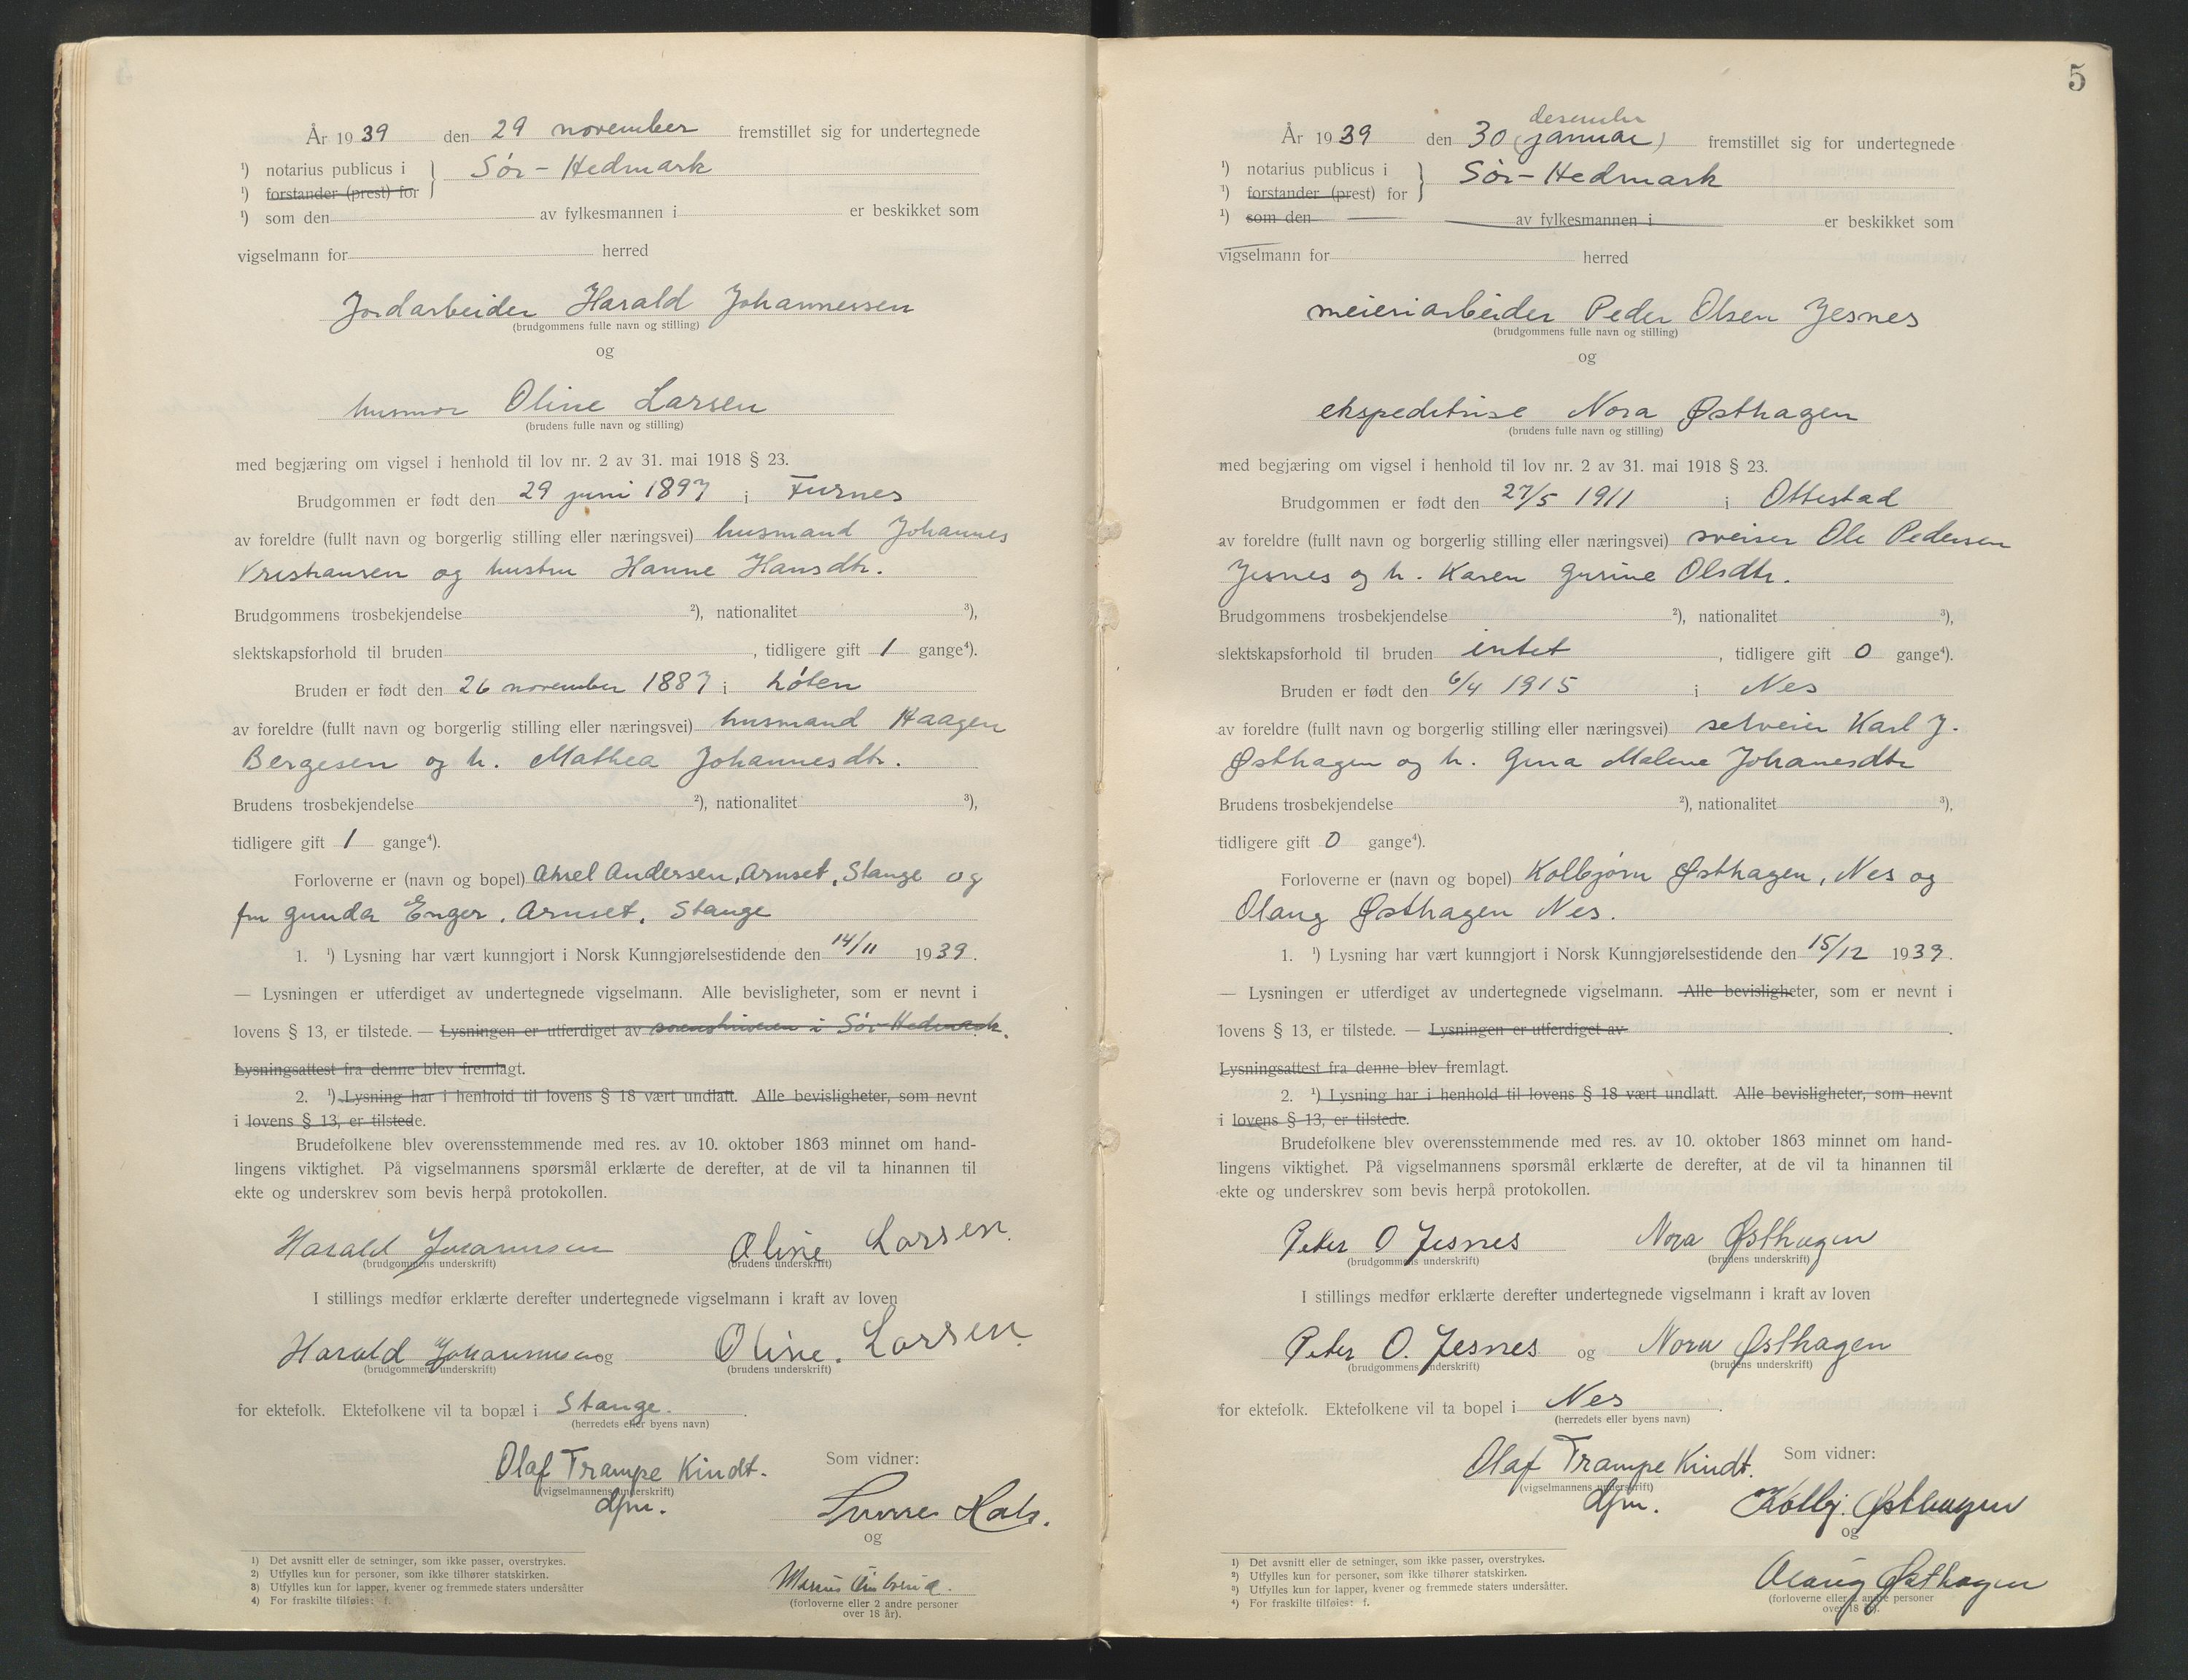 År 1939 den 29 november fremstillet sig for undertegnede
¹) notarius publicus i } Sör - Hedmark
¹) forstander (prest) for
¹) som den av fylkesmannen i er beskikket som
vigselmann for herred
Jordarbeider Harald Johannessen
(brudgommens fulle navn og stilling)
og
husmor Oline Larsen
(brudens fulle navn og stilling)
med begjæring om vigsel i henhold til lov nr. 2 av 31. mai 1918 § 23.
Brudgommen er født den 29 juni 1897 i Furnes
av foreldre (fullt navn og borgerlig stilling eller næringsvei) husmand Johannes
Kristiansen og hustru Hanne Hansdtr.
Brudgommens trosbekjendelse ²), nationalitet ³),
slektskapsforhold til bruden , tidligere gift 1 gange⁴).
Bruden er født den 26 november 1887 i Löten
av foreldre (fullt navn og borgerlig stilling eller næringsvei) husmand Haagen
Bergesen og h. Mathea Johannesdtr.
Brudens trosbekjendelse ²), nationalitet ³),
tidligere gift 1 gange⁴).
Forloverne er (navn og bopel) Aksel Andersen, Arnset, Stange og
fru Gunda Enger, Arnset, Stange
1. ¹) Lysning har vært kunngjort i Norsk Kunngjørelsestidende den 14/11 1939.
— Lysningen er utferdiget av undertegnede vigselmann. Alle bevisligheter, som er nevnt i
lovens § 13, er tilstede. — Lysningen er utferdiget av sorenskriveren i Sör-Hedmark.
Lysningsattest fra denne blev fremlagt.
2. ¹) Lysning har i henhold til lovens § 18 vært undlatt. Alle bevisligheter, som nevnt
i lovens § 13, er tilstede.
Brudefolkene blev overensstemmende med res. av 10. oktober 1863 minnet om hand-
lingens viktighet. På vigselmannens spørsmål erklærte de derefter, at de vil ta hinannen til
ekte og underskrev som bevis herpå protokollen.
Harald Johannessen Oline Larsen.
(brudgommens underskrift) (brudens underskrift)
I stillings medfør erklærte derefter undertegnede vigselmann i kraft av loven
Harald Johannessen og Oline. Larsen
(brudgommens underskrift) (brudens underskrift)
for ektefolk. Ektefolkene vil ta bopæl i Stange.
(herredets eller byens navn)
Olaf Trampe Kindt. Som vidner:
(vigselmannens underskrift)
dfm.
og
(forloverne eller 2 andre personer
over 18 år).
1) Det avsnitt eller de setninger, som ikke passer, overstrykes.
2) Utfylles kun for personer, som ikke tilhører statskirken.
3) Utfylles kun for lapper, kvener og fremmede staters undersåtter
4) For fraskilte tilføies: f.
5
desember
År 1939 den 30 (januar) fremstillet sig for undertegnede
¹) notarius publicus i } Sör - Hedmark
¹) forstander (prest) for
¹) som den av fylkesmannen i er beskikket som
vigselmann for herred
meieriarbeider Peder Olsen Jesnes
(brudgommens fulle navn og stilling)
og
ekspeditrise Nora Østhagen
(brudens fulle navn og stilling)
med begjæring om vigsel i henhold til lov nr. 2 av 31. mai 1918 § 23.
Brudgommen er født den 27/5 1911 i Ottestad
av foreldre (fullt navn og borgerlig stilling eller næringsvei) sveiser Ole Pedersen
Jesnes og h. Karen Gurine Olsdtr.
Brudgommens trosbekjendelse ²), nationalitet ³),
slektskapsforhold til bruden intet , tidligere gift 0 gange⁴).
Bruden er født den 6/4 1915 i Nes
av foreldre (fullt navn og borgerlig stilling eller næringsvei) selveier Karl J.
Østhagen og h. Gina Malene Johanesdtr
Brudens trosbekjendelse ²), nationalitet ³),
tidligere gift 0 gange⁴).
Forloverne er (navn og bopel) Kolbjörn Østhagen, Nes og
Olaug Østhagen Nes.
1. ¹) Lysning har vært kunngjort i Norsk Kunngjørelsestidende den 15/12 1939.
— Lysningen er utferdiget av undertegnede vigselmann. Alle bevisligheter, som er nevnt i
lovens § 13, er tilstede. — Lysningen er utferdiget av .
Lysningsattest fra denne blev fremlagt.
2. ¹) Lysning har i henhold til lovens § 18 vært undlatt. Alle bevisligheter, som nevnt
i lovens § 13, er tilstede.
Brudefolkene blev overensstemmende med res. av 10. oktober 1863 minnet om hand-
lingens viktighet. På vigselmannens spørsmål erklærte de derefter, at de vil ta hinannen til
ekte og underskrev som bevis herpå protokollen.
Peter O Jesnes Nora Østhagen
(brudgommens underskrift) (brudens underskrift)
I stillings medfør erklærte derefter undertegnede vigselmann i kraft av loven
Peter O. Jesnes og Nora Østhagen
(brudgommens underskrift) (brudens underskrift)
for ektefolk. Ektefolkene vil ta bopel i Nes .
(herredets eller byens navn)
Olaf Trampe Kindt. Som vidner:
(vigselmannens underskrift)
dfm. Kolbj. Østhagen
og
Olaug Østhagen
(forloverne eller 2 andre personer
over 18 år).
1) Det avsnitt eller de setninger, som ikke passer, overstrykes.
2) Utfylles kun for personer, som ikke tilhører statskirken.
3) Utfylles kun for lapper, kvener og fremmede staters undersåtter.
4) For fraskilte tilføies: f.